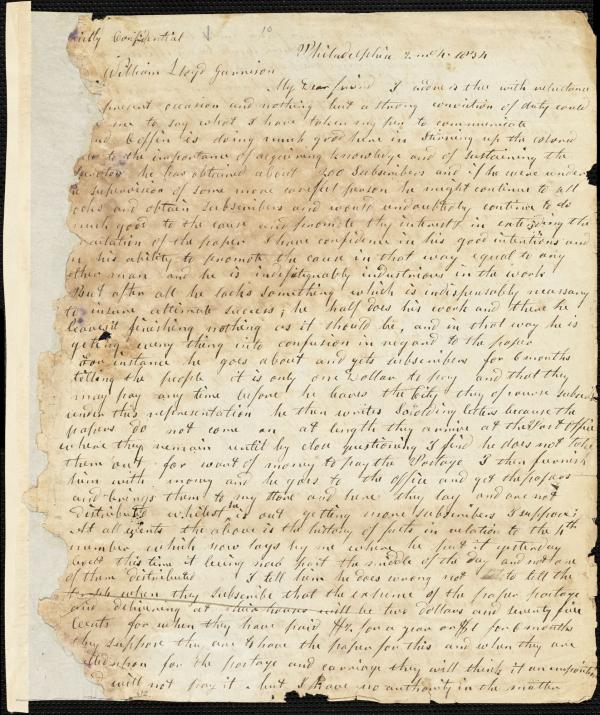 Confidential
Philadelphia 2. mo 4. 1834
William Lloyd Garrison
My Dear friend I address thee with reluctance
present occasion and nothing but a strong conviction of duty could
me to say what I have taken my pen to communicate
Coffin is doing much good here in stirring up the colored
to the importance of acquiring knowledge and of sustaining the
he has obtained about 200 subscribers and if he were under
supervision of some more careful person he might continue to all
and obtain subscribers and would undoubtedly continue to do
much good to the cause and promote thy interest in extending the
circulation of the paper I have confidence in his good intentions and
in his ability to promote the cause in that way equal to any
other man and he is indefatiguably industrious in the work
But after all he lacks something which is indispensably necessary
to insure ultimate success; he half does his work and there he
leaves it finishing nothing as it should be, and in that way he is
getting every thing into confusion in regard to the paper
For instance he goes about and gets subscribers for 6 months
telling the people it is only one Dollar to pay and that they
may pay any time before he leaves the City they of course subscribe
under this representation he then writes scolding letters because the
papers do not come on at length they arrive at the Post Office
where they remain until by close questioning I find he does not take
them out for want of money to pay the Postage I then furnish
him with money and he goes to the office and gets the papers
and brings them to my Store and here they lay and are not
distributed whilest he is out getting more subscribers I suppose;
At all events the above is the history of facts in relation to the 4th
number which now lays by me where he put it yesterday
about this time it being now past the middle of the day and not one
of them distributed I tell him he does wrong not to tell the
when they subscribe that the expense of the paper postage
and delivering at their houses will be two dollars and seventy five
Cents for when they have paid $2. for a year or $1 for 6 months
they suppose they are to have the paper for this and when they are
for the postage and carriage they will think it an imposition
and will not pay it - but I have no authority in the matter